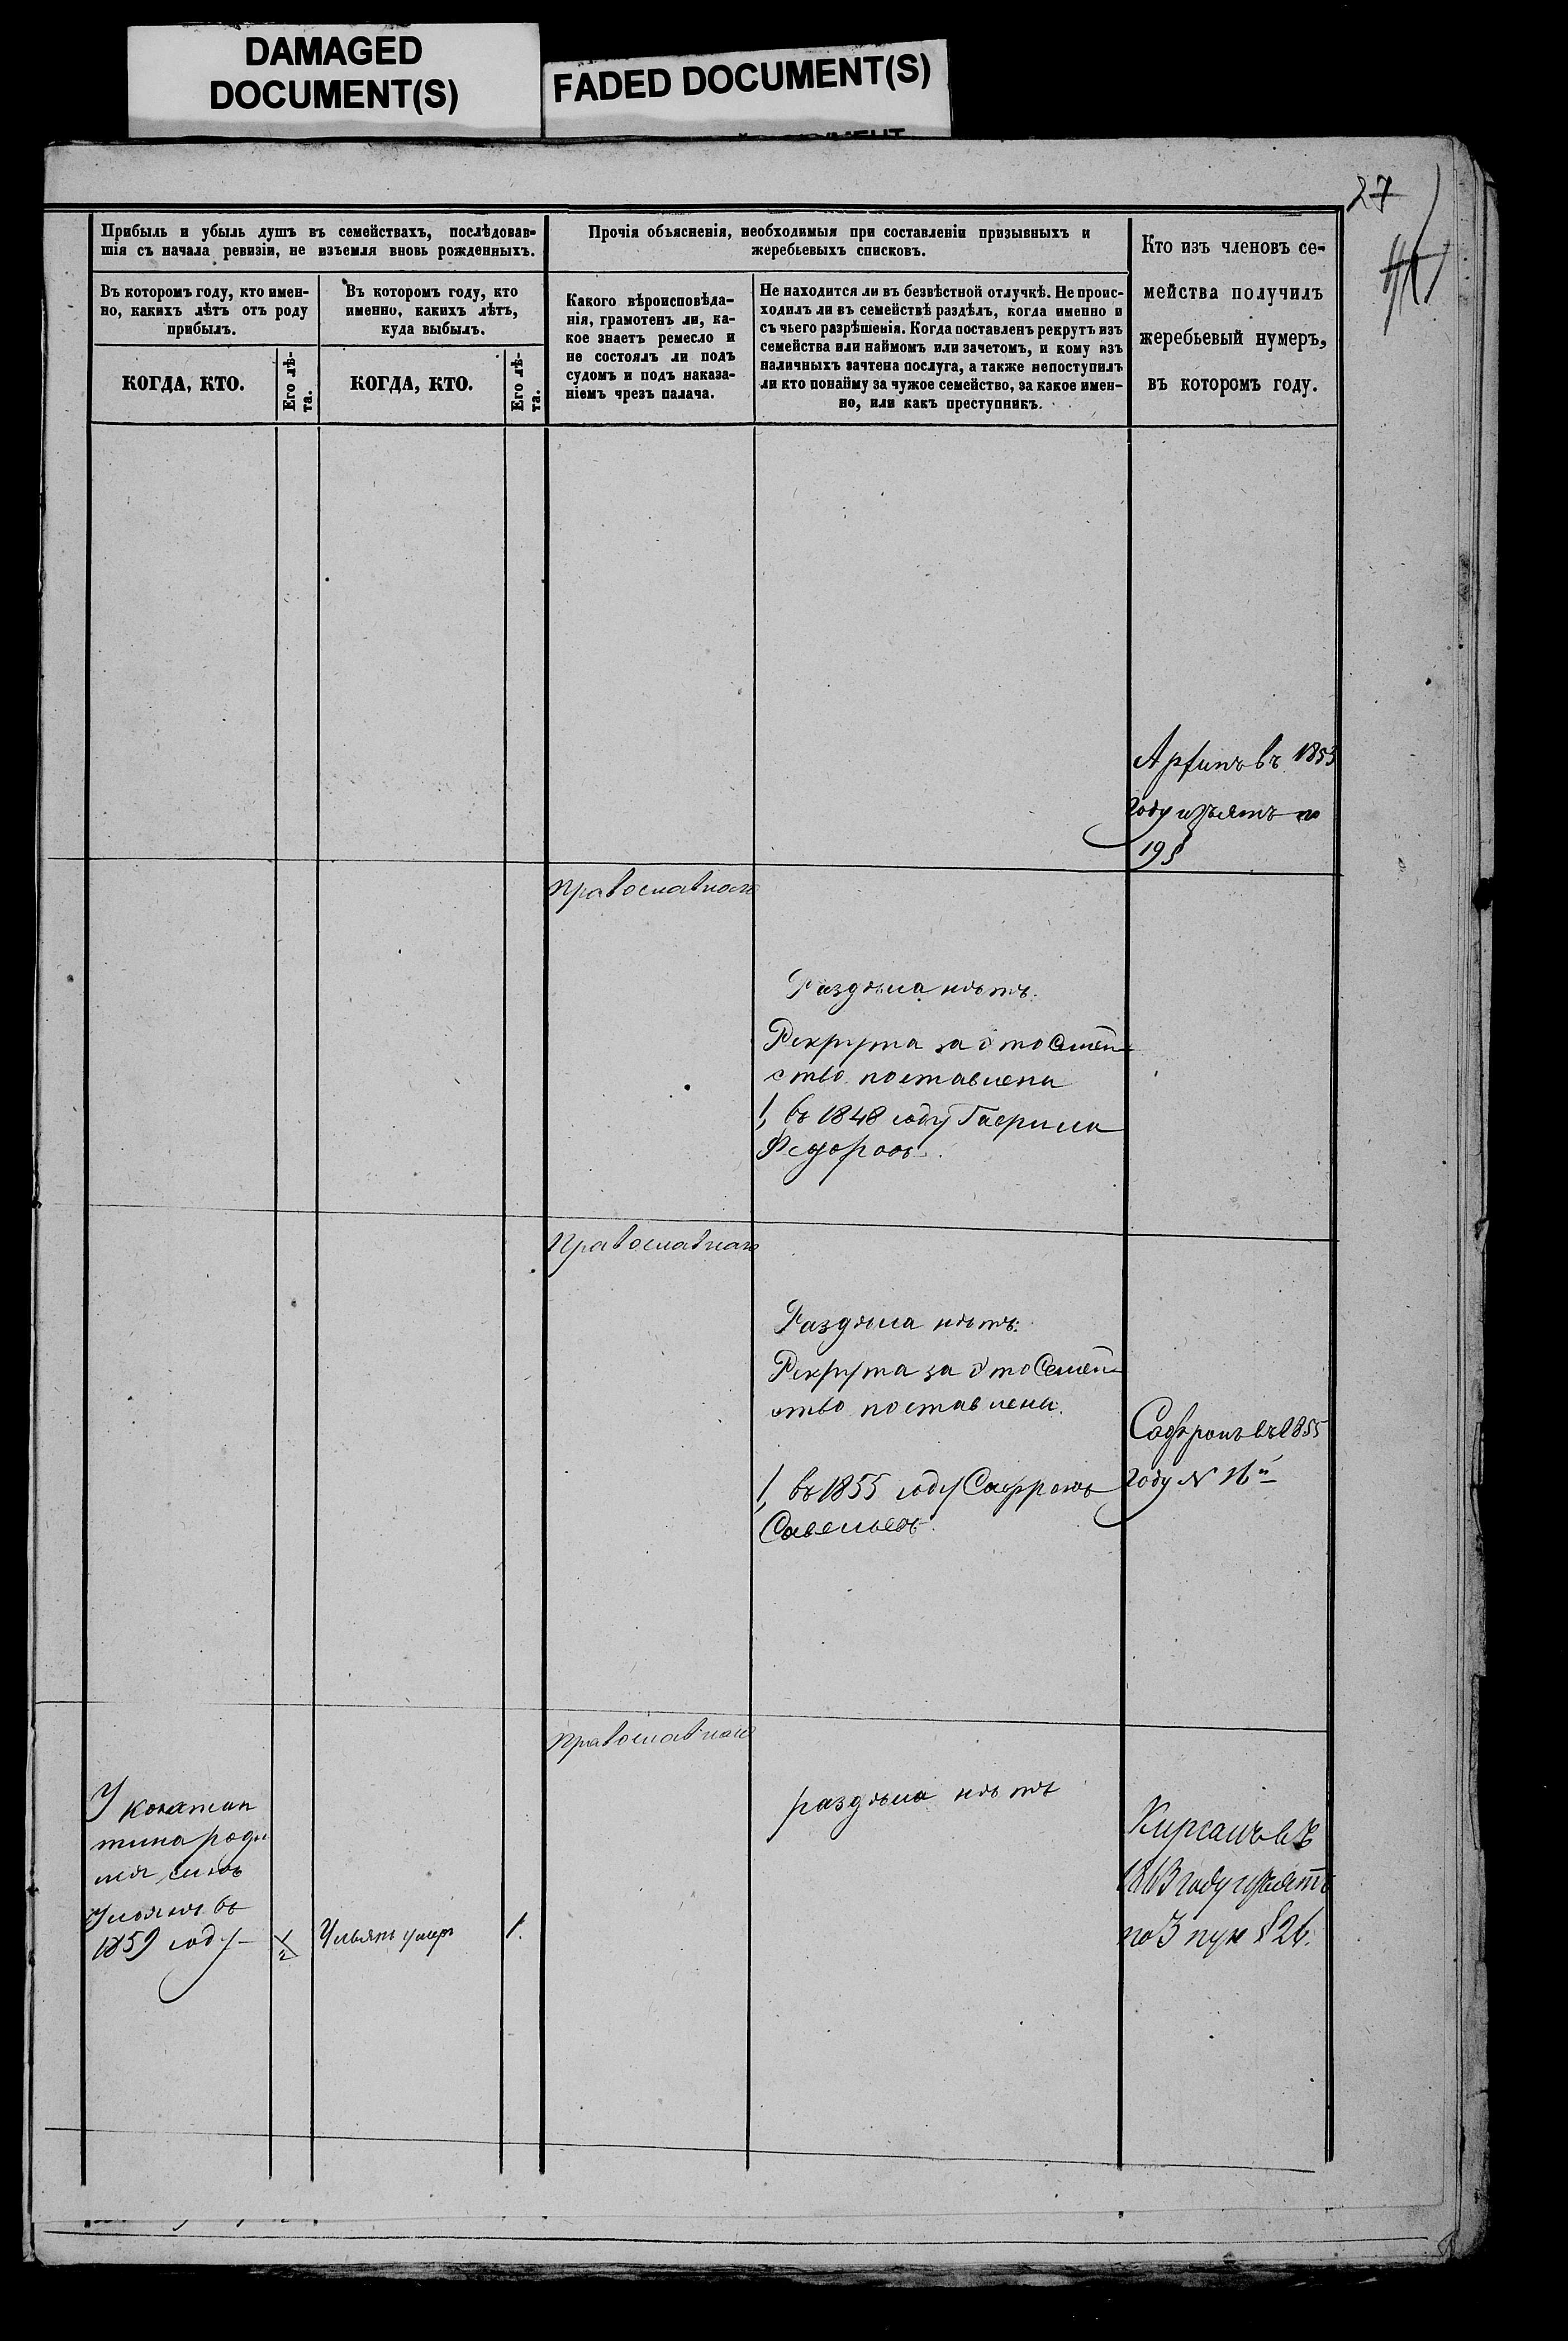 DAMAGED
DOCUMENT(S)
FADED DOCUMENT(S)
27
Прибыль и убыль душъ въ семействахъ, послѣдовав-
шія съ начала ревизіи, не изъемля вновь рожденныхъ.
Въ которомъ году, кто имен-
но, какихъ лѣтъ отъ роду
прибылъ.
КОГДА, КТО.
Его лѣ-
та.
Въ которомъ году, кто
именно, какихъ лѣтъ,
куда выбылъ.
КОГДА, КТО.
Его лѣ-
та.
Прочія объясненія, необходимыя при составленіи призывныхъ и
жеребьевыхъ списковъ.
Какого вѣроисповѣда-
нія, грамотенъ ли, ка-
кое знаетъ ремесло и
не состоялъ ли подъ
судомъ и подъ наказа-
ніемъ чрезъ палача.
Не находится ли въ безвѣстной отлучкѣ. Не проис-
ходилъ ли въ семействѣ раздѣлъ, когда именно и
съ чьего разрѣшенія. Когда поставленъ рекрутъ изъ
семейства или наймомъ или зачетомъ, и кому изъ
наличныхъ зачтена послуга, а также непоступилъ
ли кто понайму за чужое семейство, за какое имен-
но, или какъ преступникъ.
Кто изъ членовъ се-
мейства получилъ
жеребьевый нумеръ,
въ которомъ году.
Архипъ въ 1853
году изъятъ по
19 §
Православнаго
Раздѣла нѣтъ.
Рекрута за это Семей
ство поставлены
1, въ 1848 году Гаврила
Федоровъ.
Православнаго
Раздѣла нѣтъ.
Рекрута за это Семей
ство поставлены.
1, въ 1855 году Сафронъ
Савельевъ.
Сафронъ въ 1855
году N 16й
Православнаго
раздѣла нѣтъ
У Констан
тина роди
лся сынъ
Ульянъ въ
1859 году
1/2
Ульянъ умеръ
1.
Кирсанъ въ
1863 году изъятъ
по 3 пун § 26.